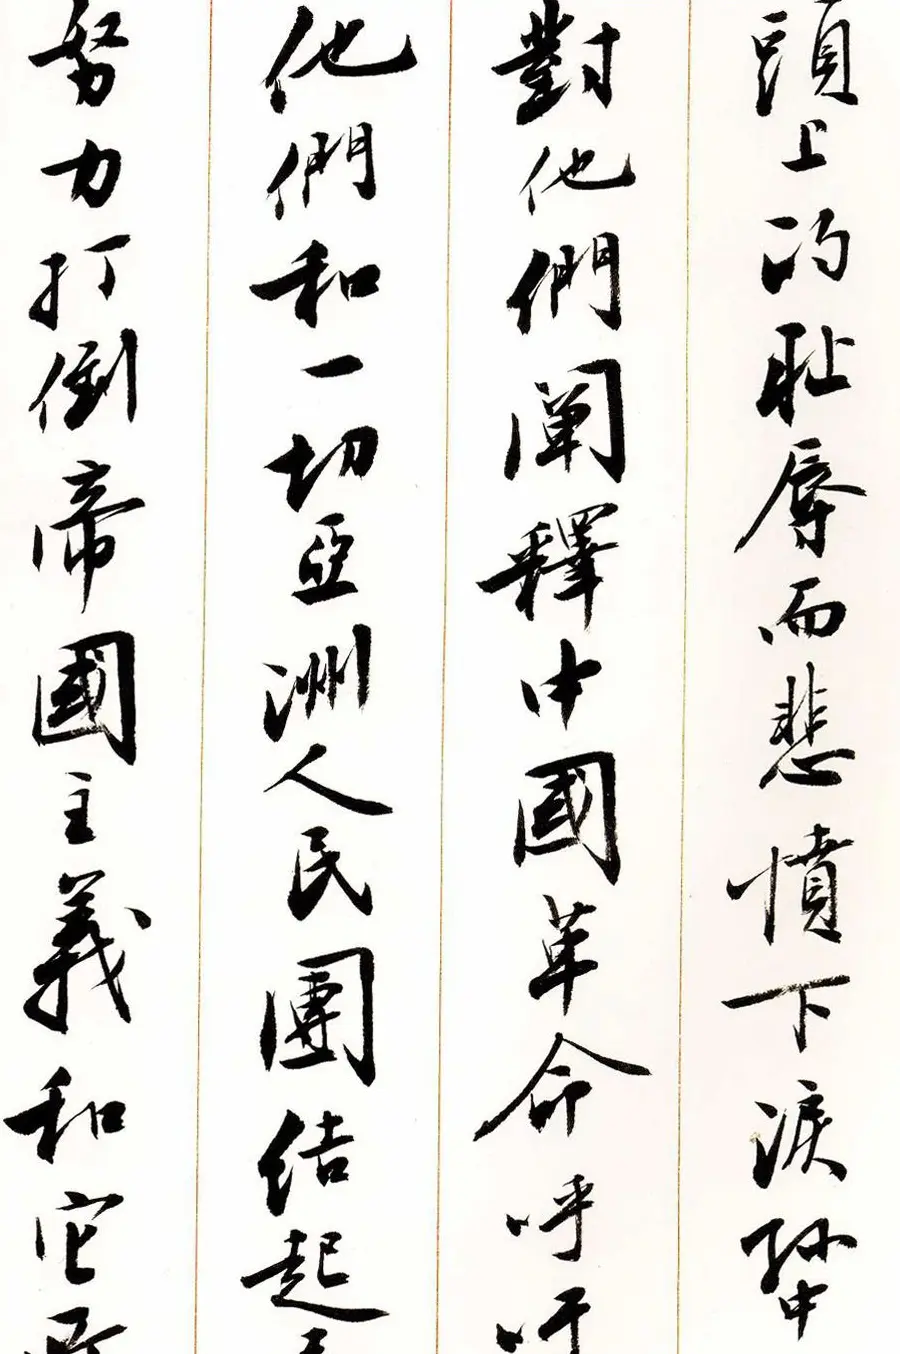 頭上的恥辱而悲憤下淚孫中
對他們闡釋中國革命呼吁
他們和一切亞洲人民團结起
努力打倒帝國主義和它所